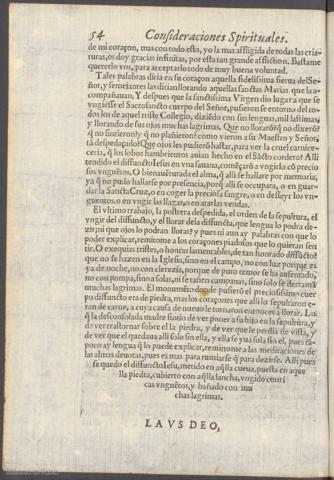 54 Consideraciones Spirituales.
de mi coraçon, mas con todo esto, yo la mas affligida de todas las cria-
turas, os doy gracias infinitas, por esta tan grande affliction. Bastame
quererlo vos, para acceptarlo todo de muy buena voluntad.
Tales palabras diria en su coraçon aquella fidelissima sierua del Se-
ñor, y semejantes las dirian llorando aquellas sanctas Marias que la a-
compañauan. Y despues que la sanctissima Virgen dio lugar a que se
vngiesse el Sacrosancto cuerpo del Señor, pusieron se entorno del to-
dos los de aquel triste Collegio, diziēdo con sus lenguas, mil lastimas,
y llorando de sus ojos muchas lagrimas. Que no lloraro̅? q̅ no dixero̅?
q̅ no sintieron? y q̅ no plañieron? como vieron a su Maestro y Señor
tā despedaçado? Que ojos les pudierō bastar, para ver la cruel carnice-
ceria, q̅ los lobos hambrientos auian hecho en el Sācto cordero? Alli
tendido el diffuncto Iesus en vna sauana, començarō a vngirlo cō precio
sos vnguētos. O bienauēturada el alma, q̅ alli se hallare por memoria,
ya q̅ no pudo hallarse por presencia, porq̅ alli se occupara, o en guar-
dar la Sancta Cruz, o en coger la preciosa sangre, o en desleyr los vn-
guentos, o en vngir las llagas, o en atarlas vendas.
El vltimo trabajo, la postrera despedida, el orden de la sepultura, el
vngir del diffuncto, y el llorar de la diffuncta, que lengua lo podra de-
zir, ni que ojos lo podran llorar? y pues ni aun ay palabras con que lo
poder explicar, remitome a los coraçones piadosos que lo quieran sen
tir. O exequias tristes, o honras lamentables, de tan honrado diffūcto?
que no se hazen en la Iglesia, sino en el campo, no con luz porque es
ya de noche, no con clerezia, porque de puro temor se ha ausentado,
no con pompa, sino a solas, ni se tañen campanas, sino solo se derramā
muchas lagrimas. El monumēto dōde pusierō el preciosissimo cuer
po diffuncto era de piedra, mas los coraçones que alli lo sepultaron e-
ran de carne, a cuya causa de nueuo le tornaron entonces a llorar. Lo
q̅ la desconsolada madre sintio de ver poner a su hijo en la sepultura, y
de ver trastornar sobre el la piedra, y de ver que le perdia de vista, y
de ver que el quedaua alli solo sin ella, y ella se yua sola sin el, pues tā-
poco ay lengua q̅ lo puede explicar, remitome a las meditaciones de
las almas deuotas, pues es mas para rumiarse q̅ para dezirse. Alli pues
se quedo el diffuncto Iesu, metido en aq̅lla cueua, puesta en aque
lla piedra, cubierto con aq̅lla lancha, vngido con ri
cas vnguētos, y bañado con mu
chas lagrimas.
LAVS DEO,